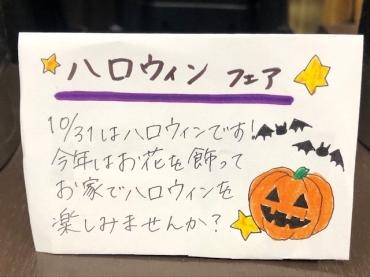 ハロウィン フェア
10/31はハロウィンです!
今年はお花を飾って
お家でハロウィンを
楽しみませんか?